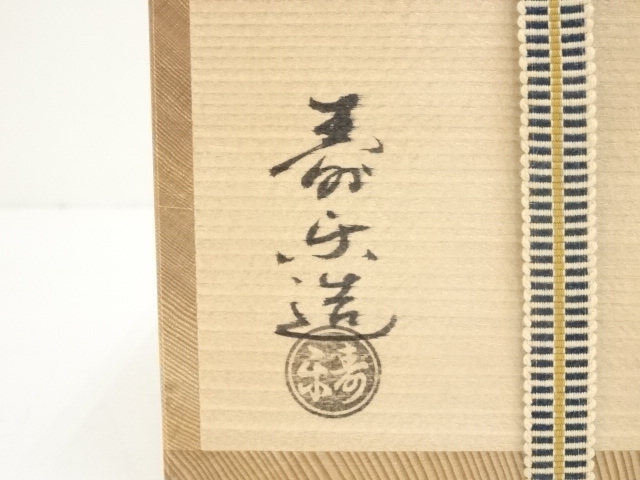 寿楽造
寿楽